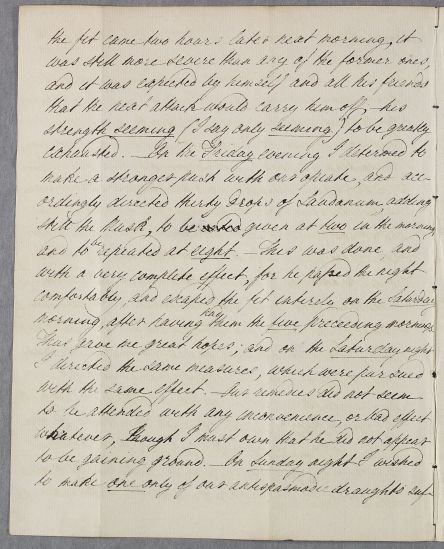 the fit came two hours later next morning, it
was still more severe than any of the former ones,
and it was expected by himself and all his friends
that the next attack would carry him off, his
strength seeming (I say only seeming) to be greatly
exhausted. — On the Friday evening I determined to
make a stronger push with our opiate, and acc-
ordingly directed thirty drops of Laudanum, adding
still the Musk, to be given at two in the morning
and to be repeated at eight. — This was done, and
with a very complete effect, for he passed the night
comfortably, and escaped the fit intirely on the Saturday
morning, after having had them the five preceeding mornings.
This gave me great hopes; and on the Saturday night
I directed the same measures, which were pursued
with the same effect. — Our remedies did not seem
to be attended with any inconvenience, or bad effect
whatever, though I must own that he did not appear
to be gaining ground. — On Sunday night I wished
to make one only of our antispasmodic draughts suf-